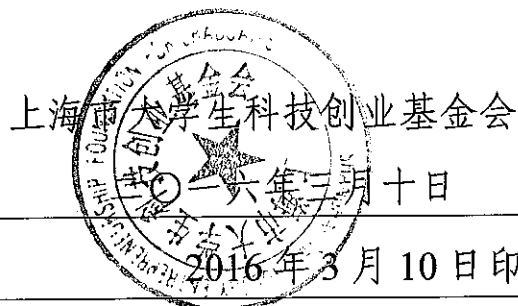 上海市大学生科技创业基金会
二〇一六年三月十日
2016年3月10日印